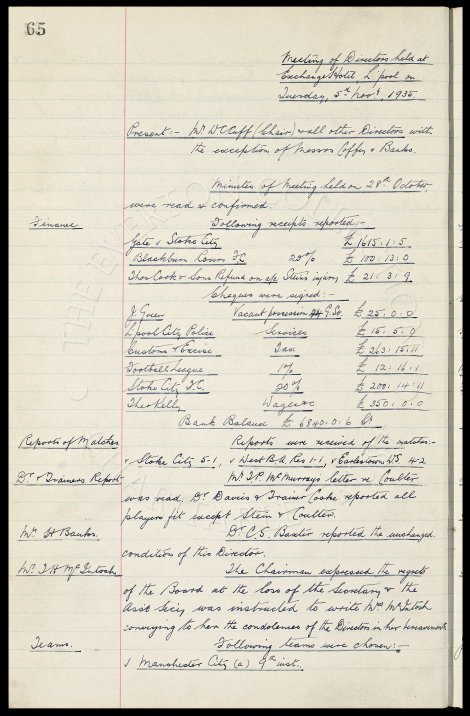 65
Meeting of Directors held at
Exchange Hotel, L'pool on
Tuesday, 5th Novr. 1935.
Present:- Mr. W.C. Cuff (Chair) & all other Directors with
the exception of Messrs Coffey & Banks.
Minutes of Meeting held on 28th October,
were read & confirmed.
Finance Following receipts reported:-
Gate v Stoke City £1615:1:5
Blackburn Rovers F.C. 20% £100:13:0
Thos Cook & Sons Refund on a/c Steins injury £21:3:9
Cheques were signed:-
J. Green Vacant possession £25.0.0
L'pool City Police Services £15.5.0
Customs & Excise Tax £263:15.11
Football League 1% £12:16:1
Stoke City F.C. 20% £200:14:11
Theo Kelly Wages &c £350:0.0
Bank Balance £6840:0:6 Cr.
Reports of Matches Reports were received of the matches:-
v Stoke City 5-1, v West B.A. Res 1-1, v Earlestown W.S. 4-2
Dr. & Trainers Report Mr. T.P. McMurray's letter re Coulter
was read, Dr. Davies & Trainer Cooke reported all
players fit except Stein & Coulter.
Mr. H Banks. Dr. C.S. Baxter reported the unchanged
condition of this Director.
Mr. T.H. McIntosh The Chairman expressed the regrets
of the Board at the loss of the Secretary & the
Asst Secy was instructed to write Mrs McIntosh
conveying to her the condolences of the Directors in her bereavement.
Teams. Following teams were chosen:-
v Manchester City (a) 9th inst.